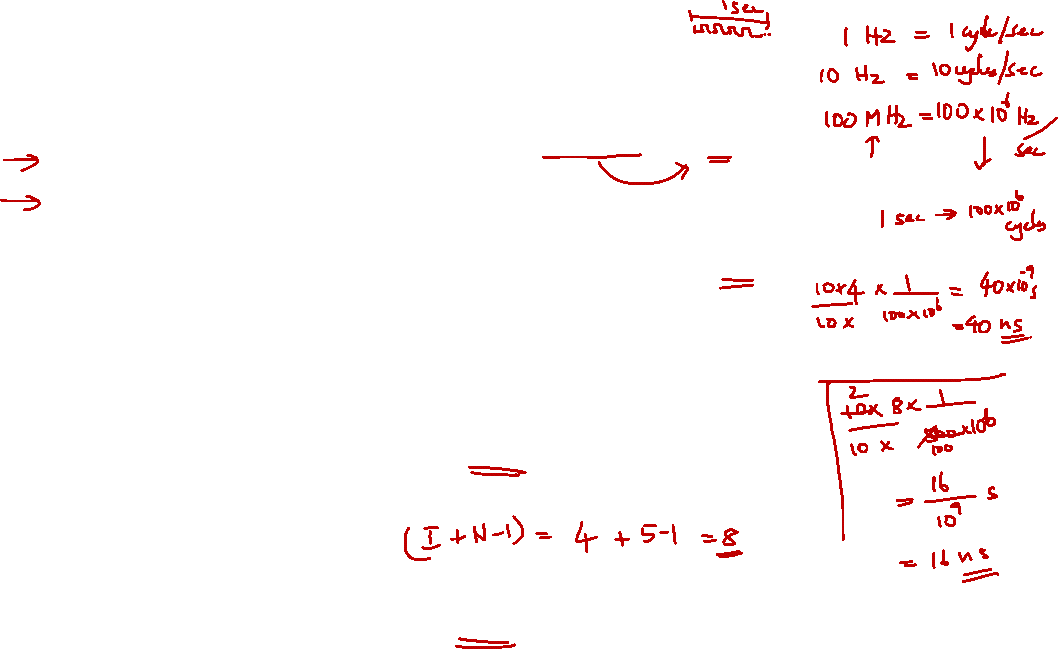 1 sec
1 Hz = 1 cycle/sec
10 Hz = 10 cycles/sec
100 MHz = 100 x 10^6 Hz
sec
1 sec → 100x10^6
cycles
10x4 x 1 = 40x10^-9 s
10 x 100x10^6
=40 ns
2
10x 8x 1
10 x 500x10^6
100
= 16 s
10^9
= 16 ns
(I + N-1) = 4 + 5-1 = 8